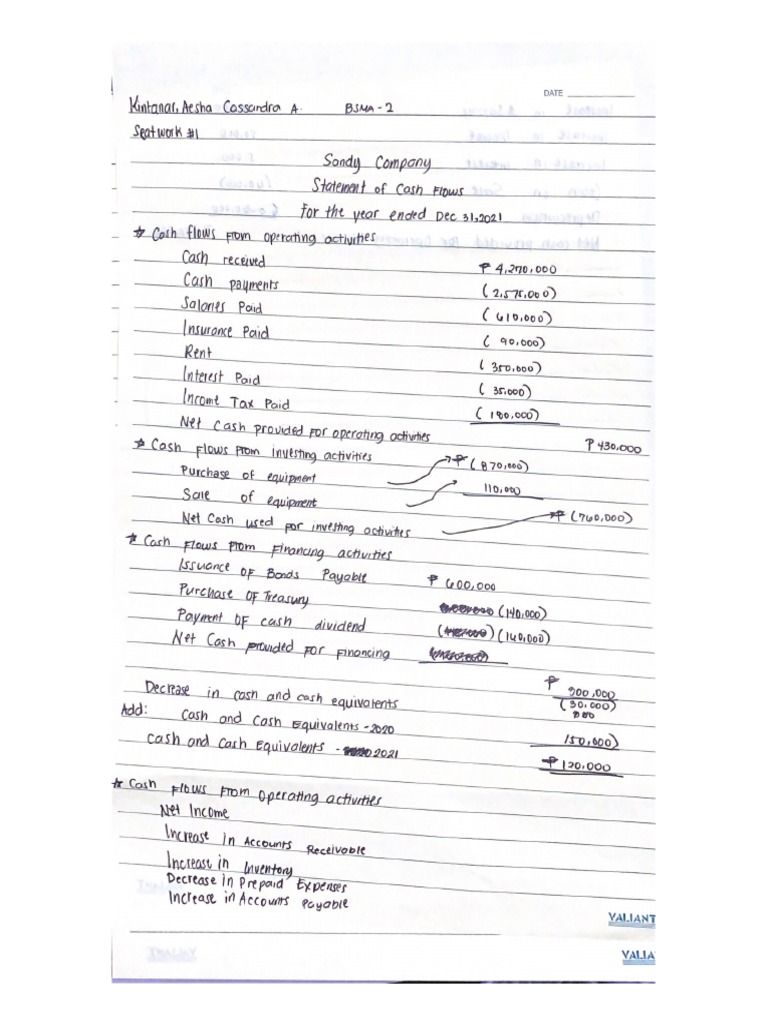 DATE
Kintanar, Aesha Cassandra A. BSMA-2
Seatwork #1
Sondy Company
Statement of Cash Flows
For the year ended Dec 31, 2021
* Cash flows from operating activities
Cash received ₱ 4,270,000
Cash payments (2,575,000)
Salaries Paid (610,000)
Insurance Paid (90,000)
Rent (350,000)
Interest Paid (35,000)
Income Tax Paid (180,000)
Net Cash provided for operating activities ₱ 430,000
* Cash flows from investing activities
Purchase of equipment ₱ (870,000)
Sale of equipment 110,000
Net Cash used for investing activities ₱ (760,000)
* Cash flows from Financing activities
Issuance of Bonds Payable ₱ 600,000
Purchase of Treasury (140,000)
Payment of cash dividend (160,000)
Net Cash provided for financing
₱ 300,000
Decrease in cash and cash equivalents (30,000)
Add: Cash and Cash Equivalents - 2020 150,000)
Cash and Cash Equivalents - 2021 ₱ 120,000
* Cash flows from Operating activities
Net Income
Increase in Accounts Receivable
Increase in Inventory
Decrease in Prepaid Expenses
Increase in Accounts Payable
VALIANT
VALIA